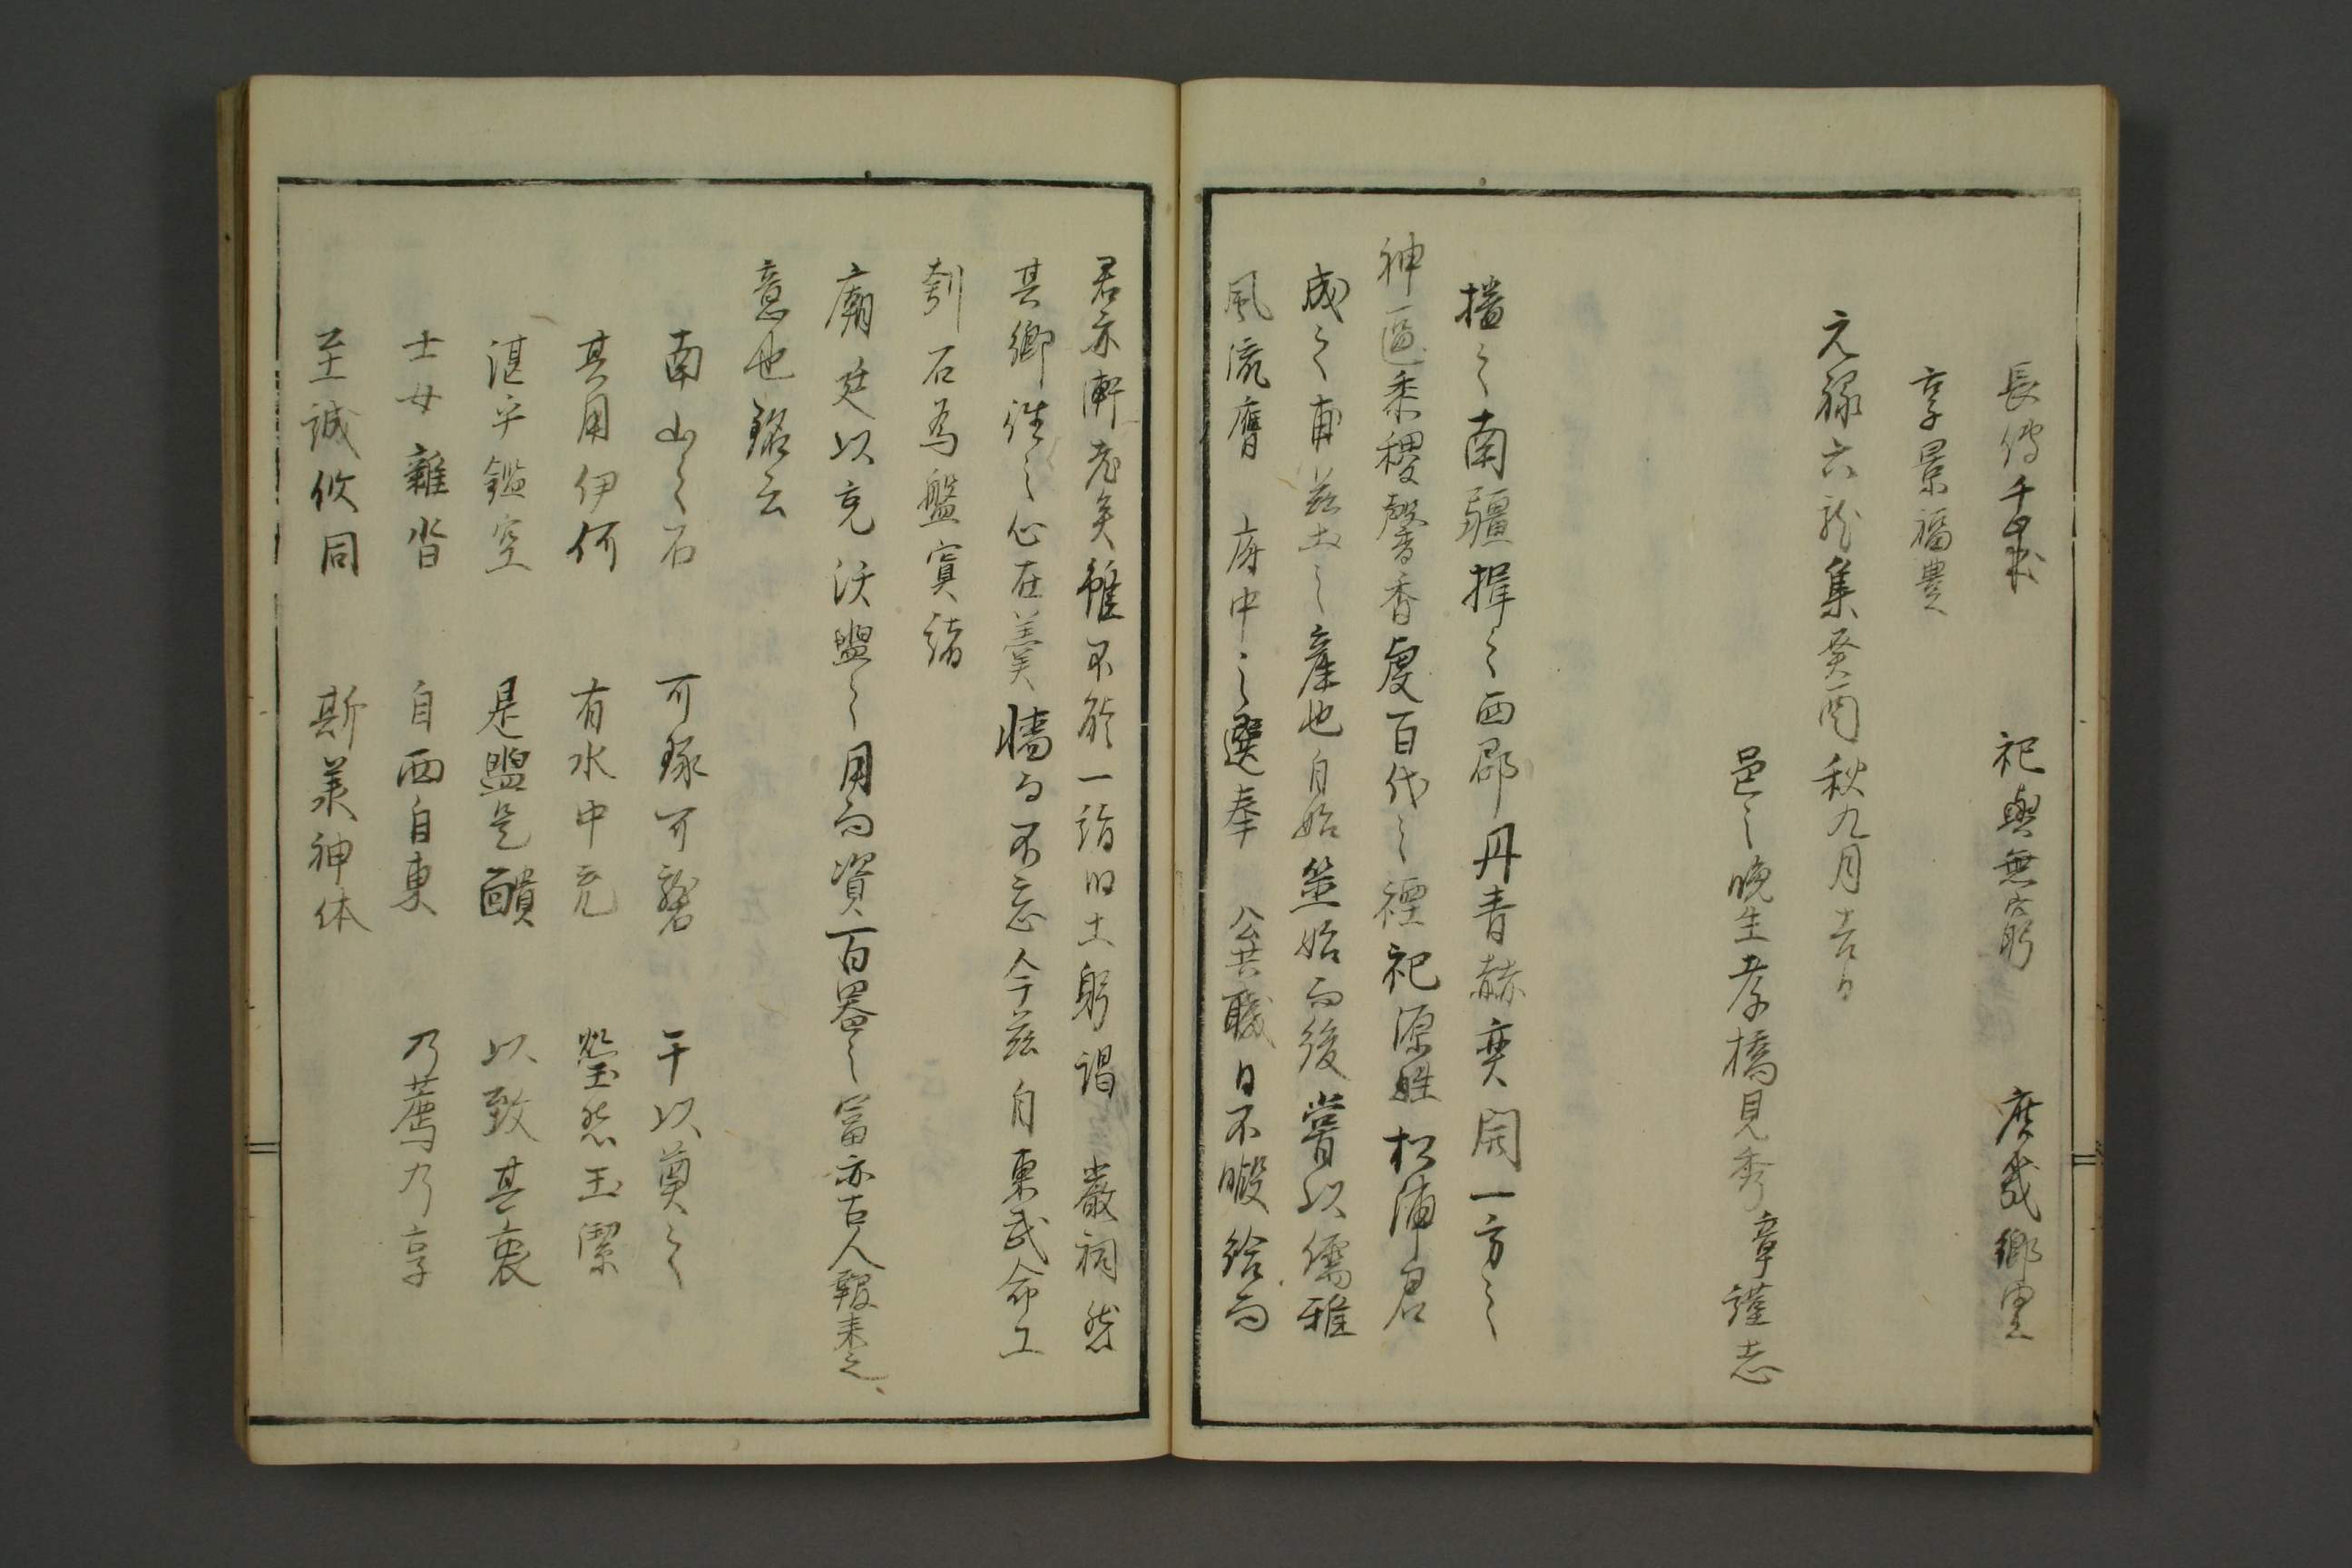 長傳千棗 祀與無窮 庶幾鄉里
享景福豊
元祿六龍集癸酉秋九月吉日
邑之晚生孝橋見秀章謹志
播之南疆揖之西郡丹青赫奕開一方之
神區黍稷馨香虔百代之禋祀源姓松浦君
成之甫茲土之產也自始筮始而後嘗以儒雅
風流膺 府中之選奉 公共職日不暇給而
君亦漸老矣雖不能一詣旧土躬謁 嚴祠然
其鄉往之心在羹牆而不忘今茲自東武命工
刳石為盤寘諸
廟廷以充沃盥之用而資百器之富亦古人報本之
意也銘云
南山之石 可琢可礱 干以奠之
其用伊何 有水中充 瑩然玉潔
湛乎鑑空 是盥是靧 以致其衷
士女雜沓 自西自東 乃薦乃享
至誠攸同 斯羕神休